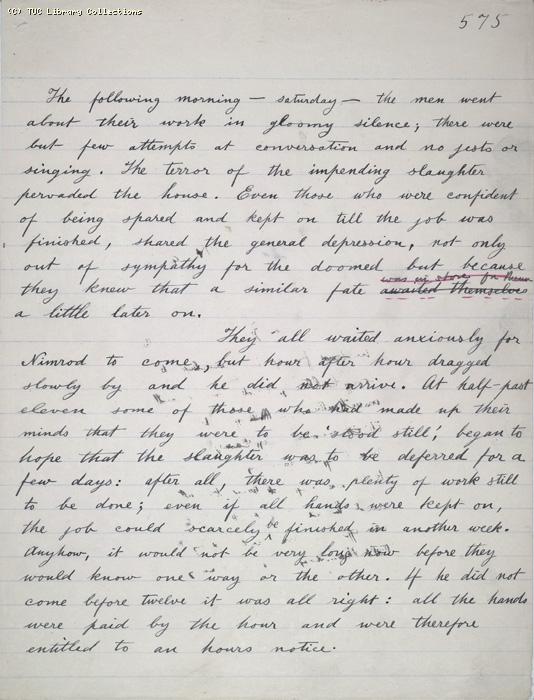 (C) TUC Library Collections
575
The following morning — saturday — the men went
about their work in gloomy silence; there were
but few attempts at conversation and no jests or
singing. The terror of the impending slaughter
pervaded the house. Even those who were confident
of being spared and kept on till the job was
finished, shared the general depression, not only
out of sympathy for the doomed but because
was in store for them
they knew that a similar fate awaited themselves
a little later on.
They all waited anxiously for
Nimrod to come, but hour after hour dragged
slowly by and he did not arrive. At half-past
eleven some of those who had made up their
minds that they were to be 'stood still', began to
hope that the slaughter was to be deferred for a
few days: after all, there was plenty of work still
to be done; even if all hands were kept on,
the job could scarcely be finished in another week.
Anyhow, it would not be very long now before they
would know one way or the other. If he did not
come before twelve it was all right: all the hands
were paid by the hour and were therefore
entitled to an hours notice.